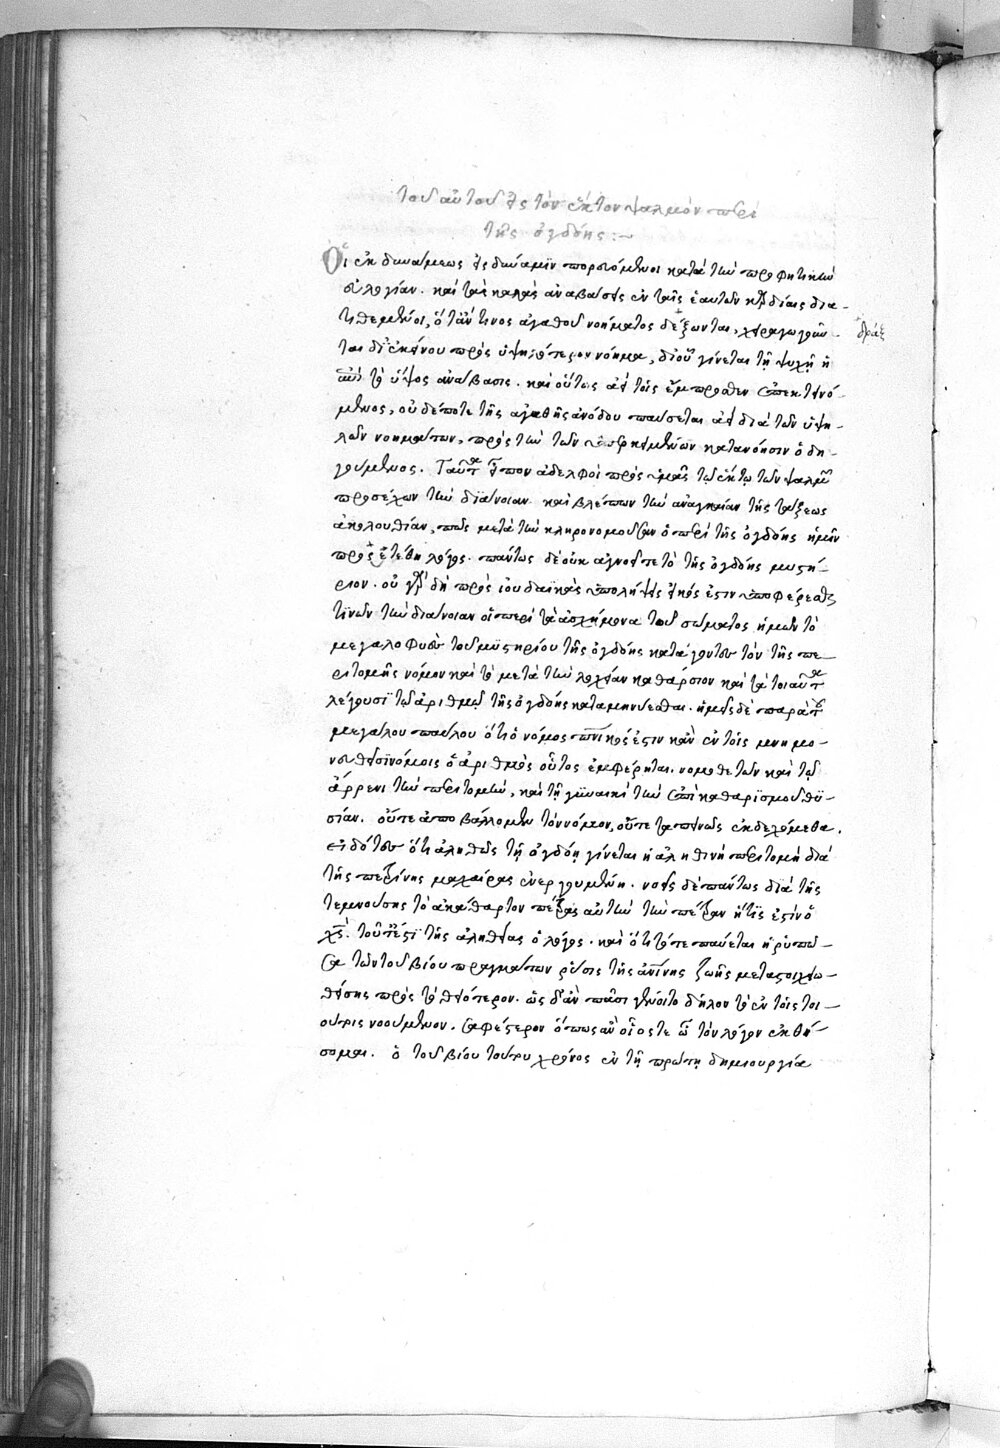 τοῦ αὐτοῦ εἰς τὸν ἕκτον ψαλμὸν περὶ
τῆς ὀγδόης :~
Οἱ ἐκ δυνάμεως εἰς δύναμϊν πορευόμενοι κατὰ τὴν προφητικὴν
εὐλογίαν. καὶ τὰς καλὰς ἀναβάσεις ἐν ταῖς ἑαυτῶν καρδίαις δια-
τιθέμενοι, ὅτἄν τινος ἀγαθοῦ νοήματος δέξωνται, χειραγωγοῦν
δράξ
ται δι' ἐκείνου πρὸς ὑψηλότερον νόημα, δι οὗ γίνεται τῇ ψυχῇ ἡ
ἐπὶ τὸ ὕψος ἀνάβασις. καὶ οὕτως ἀεὶ τοῖς ἔμπροσθεν ἐπεκτεινό-
μενος, οὐδέποτε τῆς ἀγαθῆς ἀνόδου παύσεται ἀεὶ διὰ τῶν ὑψη-
λῶν νοημάτων, πρὸς τὴν τῶν ὑπερκειμένων κατανόησιν ὁδη-
γούμενος. Ταῦτα εἶπον ἀδελφοὶ πρὸς ὑμᾶς τῷ ἕκτῳ τῶν ψαλμῶν
προσέχων τὴν διάνοιαν καὶ βλέπων τὴν ἀναγκαίαν τῆς τάξεως
ἀκολουθίαν, πῶς μετὰ τὴν κληρονομοῦσαν ὁ περὶ τῆς ὀγδόης ἡμῖν
προσετέθη λόγος. πάντως δὲ οὐκ ἀγνοεῖτε τὸ τῆς ὀγδόης μυστή-
ριον. οὐ γὰρ δὴ πρὸς ϊουδαϊκὰς ὑπολήψεις εἰκός ἐστιν ὑποφέρεσθαι
τϊνῶν τὴν διάνοιαν οἳ περὶ τὰ ἀσχήμονα τοῦ σώματος ἡμῶν τὸ
μεγαλοφυὲς τοῦ μϋστηρίου τῆς ὀγδόης κατάγοντες τὸν τῆς πε-
ριτομῆς νόμον καὶ τὸ μετὰ τὴν λοχείαν καθάρσιον καὶ τὰ τοιαῦτα
λέγουσϊ τῷ ἀριθμῷ τῆς ὀγδόης καταμηνύεσθαι. ἡμεῖς δὲ παρὰ τοῦ
μεγάλου παύλου ὅτι ὁ νόμος πνικός ἐστιν κἂν ἐν τοῖς μνημο-
νευθεῖσϊ νόμοις ὁ ἀριθμὸς οὗτος ἐμφέρηται. νομοθετῶν καὶ τῷ
ἄρρενι τὴν περιτομὴν, καὶ τῇ γϋναικὶ τὴν ἐπὶ καθαρϊσμοῦ θϋ-
σίαν. οὔτε ἀποβάλλομεν τὸν νόμον, οὔτε ταπεινῶς ἐκδεχόμεθα.
εἰδότες ὅτι ἀληθῶς τῇ ὀγδόῃ γίνεται ἡ ἀληθινὴ περιτομὴ διὰ
τῆς πετρίνης μαχαίρας ἐνεργουμένη. νοεῖς δὲ πάντως διὰ τῆς
τεμνούσης τὸ ἀκάθαρτον πέτρας αὐτὴν τὴν πέτραν ἥτϊς ἐστὶν ὁ
χς. τουτέστϊ τῆς ἀληθείας ὁ λόγος. καὶ ὅτι τότε παύεται ἡ ῥυπῶ-
σα τῶν τοῦ βίου πραγμάτων ῥύσις τῆς ἀνίνης ζωῆς μεταστοιχειω-
θείσης πρὸς τὸ θειότερον. ὡς δ' ἂν πᾶσι γένοιτο δῆλον τὸ ἐν τοῖς τοι-
ούτοις νοούμενον. σαφέστερον ὅπως ἂν οἷός τε ὦ τὸν λόγον ἐκθή-
σομαι. ὁ τοῦ βίου τούτου χρόνος ἐν τῇ πρώτῃ δημιουργία